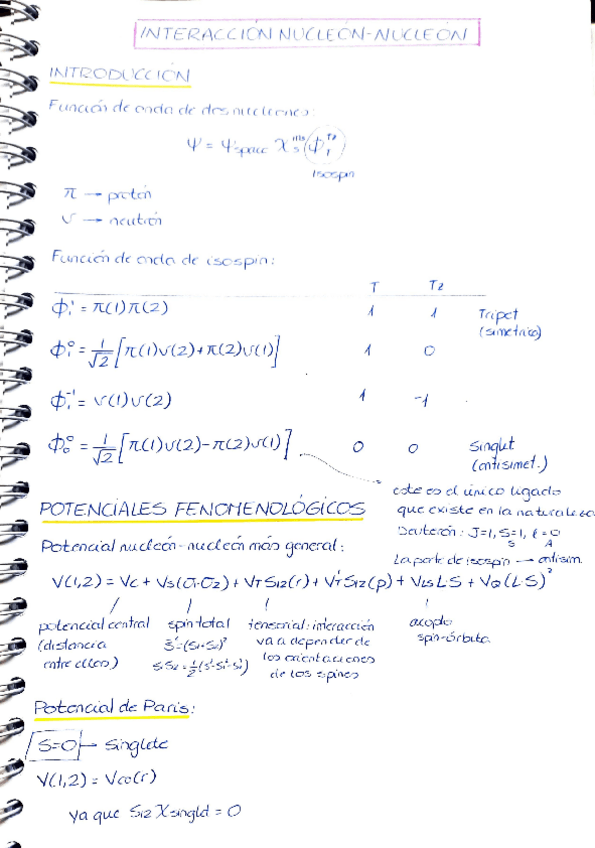 INTERACCIÓN NUCLEÓN-NUCLEÓN
INTRODUCCIÓN
Función de onda de dos nucleones:
Ψ = Ψspace χ_s^ms (Φ_T^Tz)
isospin
π → protón
ν → neutrón
Función de onda de isospin:
T Tz
Φ₁¹ = π(1)π(2) 1 1 Triplet
(simétrico)
Φ₁⁰ = 1/√2 [π(1)ν(2)+π(2)ν(1)] 1 0
Φ₁⁻¹ = ν(1)ν(2) 1 -1
Φ₀⁰ = 1/√2 [π(1)ν(2)-π(2)ν(1)] 0 0 Singlet
(antisimet.)
este es el único ligado
que existe en la naturaleza
Deuterón: J=1, S=1, t=0
S A
La parte de isospin → antisim
POTENCIALES FENOMENOLÓGICOS
Potencial nucleón-nucleón más general:
V(1,2) = Vc + Vs(σ₁·σ₂) + VT S12(r) + V'T S12(p) + VLS L·S + VQ (L·S)²
potencial central
(distancia
entre ellos)
spin total
tensorial: interacción
va a depender de
las orientaciones
de los spines
acoplo
spin-órbita
Potencial de Paris:
S=0 → singlete
V(1,2) = Vc0(r)
ya que S12 χsinglet = 0